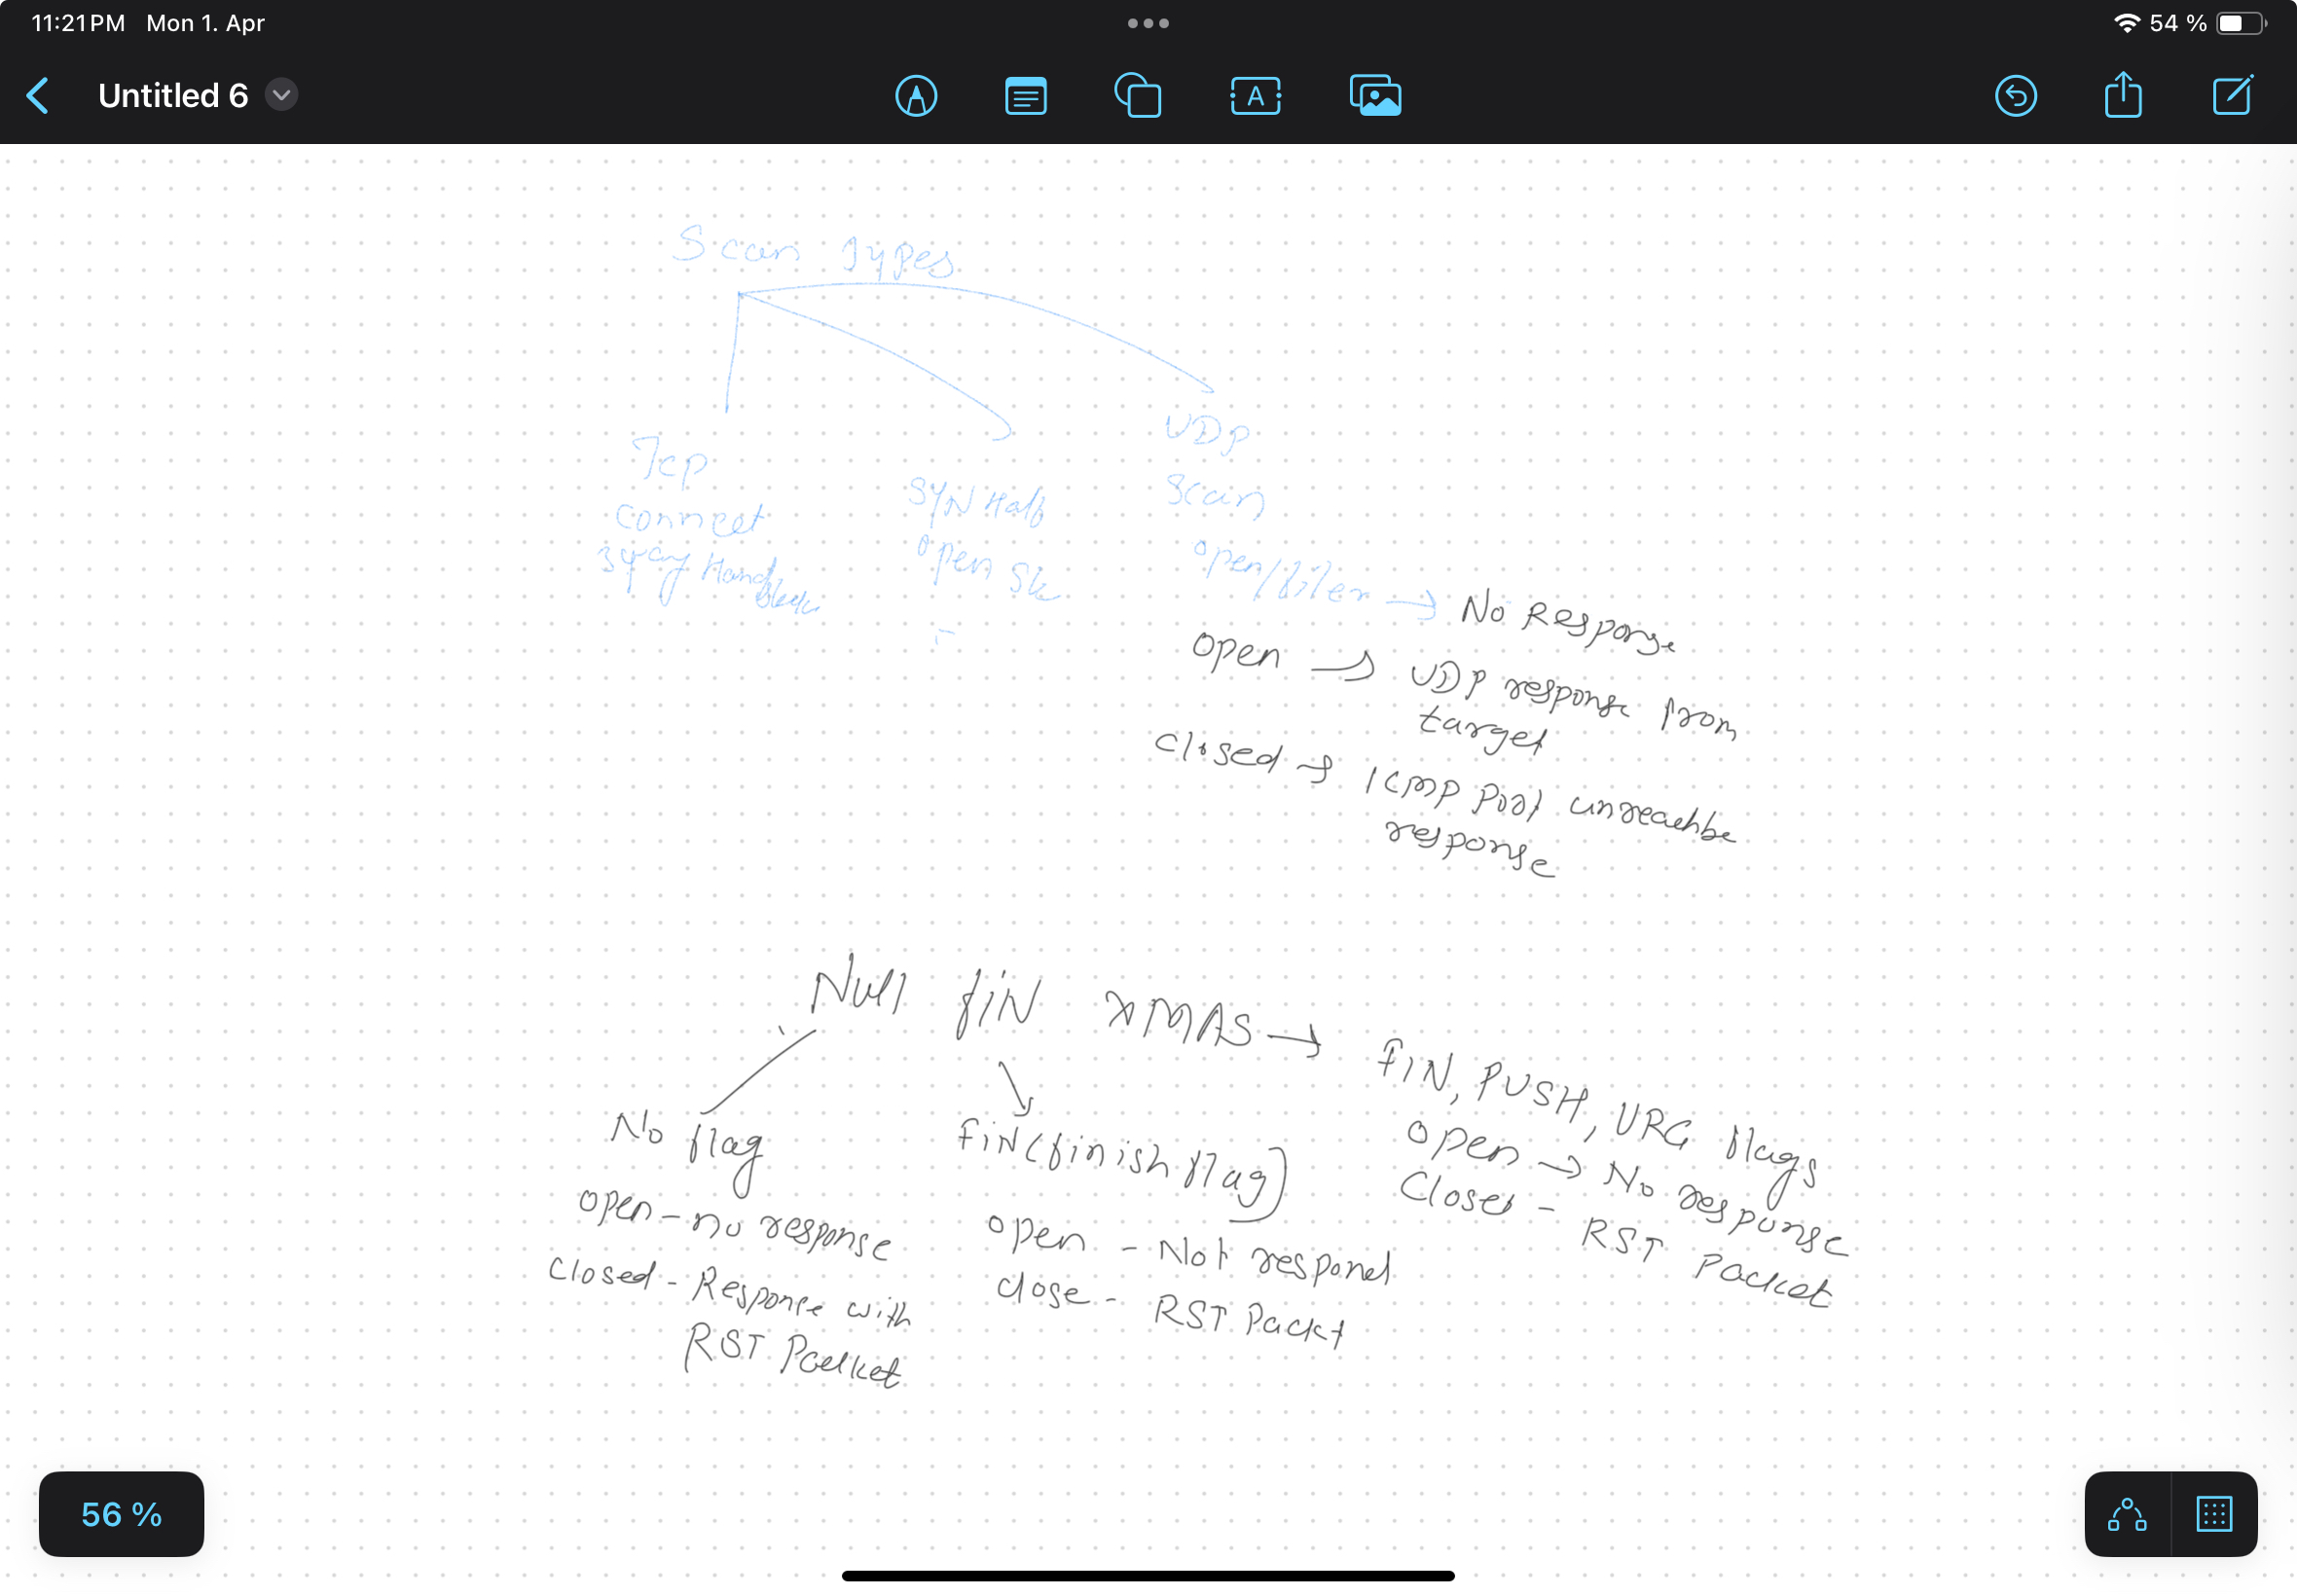 11:21 PM Mon 1. Apr
54 %
Untitled 6
A
Scan Types
Tcp
connect
3way Hand
SYN Half
open
UDP
Scan
open/filer → No Response
open → UDP response from
target
closed → ICMP Port unreachbe
response
Null fiN XMAS → fiN, PUSH, URG flags
open → No response
Closes - RST Packet
No flag
open - no response
Closed - Response with
RST Packet
fiN (finish flag)
open - Not respond
close - RST Packt
56 %